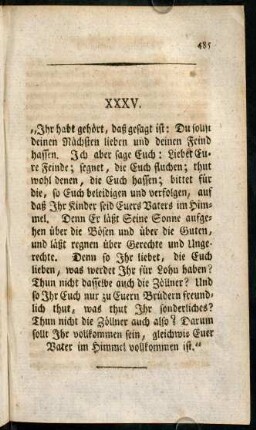 485
XXXV.
„Ihr habt gehört, daß gesagt ist: Du sollt
deinen Nächsten lieben und deinen Feind
hassen. Ich aber sage Euch: Liebet Eu-
re Feinde; segnet, die Euch fluchen; thut
wohl denen, die Euch hassen; bittet für
die, so Euch beleidigen und verfolgen, auf
daß Ihr Kinder seid Euers Vaters im Him-
mel. Denn Er läßt Seine Sonne aufge-
hen über die Bösen und über die Guten,
und läßt regnen über Gerechte und Unge-
rechte. Denn so Ihr liebet, die Euch
lieben, was werdet Ihr für Lohn haben?
Thun nicht dasselbe auch die Zöllner? Und
so Ihr Euch nur zu Euern Brüdern freund-
lich thut, was thut Ihr sonderliches?
Thun nicht die Zöllner auch also? Darum
sollt Ihr vollkommen sein, gleichwie Euer
Vater im Himmel vollkommen ist.“